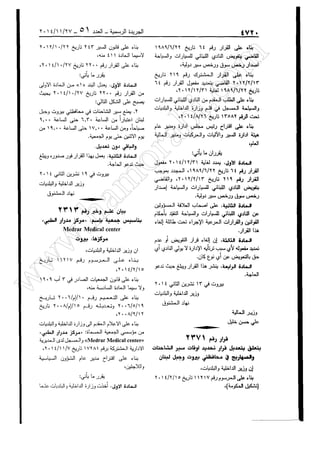 ٤٧٢٠
الجريدة الرسمية – العدد ٥١ – ٢٠١٤/١١/٢٧
بناء على القرار رقم ٦٤ تاريخ ١٩٨٩/٦/٢٢
القاضي بتفويض النادي اللبناني للسيارات والسياحة
اصدار رخص سوق ورخص سير دولية،
بناء على القرار المشترك رقم ٢١٩ تاريخ
٢٠١٢/٢/١٣ تمديد مفعول القرار رقم ٦٤
تاريخ ١٩٨٩/٦/٢٢ لغاية ٢٠١٢/١٢/٣١،
بناء على الطلب المقدم من النادي اللبناني للسيارات
والسياحة المسجل في قلم وزارة الداخلية والبلديات
بناء على اقتراح رئيس مجلس ادارة ومدير عام
هيئة ادارة السير والآليات والمركبات ومدير المالية
العام،
يقرران ما يأتي:
المادة الاولى: يمدد لغاية ٢٠١٤/١٢/٣١ مفعول
القرار رقم ٦٤ تاريخ ١٩٨٩/٦/٢٢ المجدد بموجب
القرار رقم ٢١٩ تاريخ ٢٠١٢/٢/١٣، والقاضي
بتفويض النادي اللبناني للسيارات والسياحة إصدار
رخص سوق ورخص سير دولية.
المادة الثانية: على اصحاب العلاقة المسؤولين
عن النادي اللبناني للسيارات والسياحة التقيد بأحكام
القوانين والقرارات المرعية الإجراء تحت طائلة إلغاء
هذا القرار.
المادة الثالثة: إن إلغاء قرار التفويض أو عدم
تمديد مفعوله لأي سبب تراه الإدارة لا يولي النادي أي
حق بالتعويض عن أي نوع كان.
المادة الرابعة: ينشر هذا القرار ويبلغ حيث تدعو
الحاجة.
بيروت في ١٣ تشرين الثاني ٢٠١٤
وزير الداخلية والبلديات
نهاد المشنوق
وزير المالية
علي حسن خليل
قرار رقم ٢٣٧١
يتعلق بتعديل قرار تحديد اوقات سير الشاحنات
والصهاريج في محافظتي بيروت وجبل لبنان
إن وزير الداخلية والبلديات،
بناء على المرسوم رقم ١١٢١٧ تاريخ ٢٠١٤/٢/١٥
(تشكيل الحكومة)،
بناء على قانون السير ٢٤٣ تاريخ ٢٠١٢/١٠/٢٢
لاسيما المادة ٤١١ منه،
بناء على القرار رقم ٢٢٠٠ تاريخ ٢٠١٤/١٠/٢٧،
يقرر ما يأتي:
المادة الاولى: يعدل البند ٥١٥ من المادة الاولى
من القرار رقم ٢٢٠٠ تاريخ ٢٠١٤/١٠/٢٧ بحيث
يصبح على الشكل التالي:
٢. يمنع سير الشاحنات في محافظتي بيروت وجبل
لبنان اعتباراً من الساعة ٦,٣٠ حتى الساعة ٩,٠٠
صباحاً، ومن الساعة ١٧,٠٠ حتى الساعة ١٩,٠٠ من
يوم الاثنين حتى يوم الجمعة.
والباقي دون تعديل.
المادة الثانية: يعمل بهذا القرار فور صدوره ويبلغ
حيث تدعو الحاجة.
بيروت في ١٩ تشرين الثاني ٢٠١٤
وزير الداخلية والبلديات
نهاد المشنوق
بيان علم وخبر رقم ٢٣١٣
بتأسيس جمعية باسم: «مركز مدرار الطبي»
Medrar Medical center
مركزها: بيروت
إن وزير الداخلية والبلديات،
بناء على المرسوم رقم ١١٢١٧ تاريخ
٢٠١٤/٢/١٥،
بناء على قانون الجمعيات الصادر في ٣ آب ١٩٠٩
ولا سيما المادة السادسة منه،
بناء على التعميم رقم ١٠/إم/٢٠٠٦ تاريخ
٢٠٠٦/٥/١٩
٢٠٠٨/٩/٢،
بناء على الاعلام المقدم الى وزارة الداخلية والبلديات
من مؤسسي الجمعية المسماة: «مركز مدرار الطبي-
Medrar Medical center» والمسجل لدى المديرية
الادارية المشتركة برقم ١٧٢٨١ تاريخ ٢٠١٤/١١/٧،
بناء على اقتراح مدير عام الشؤون السياسية
واللاجئين،
يقرر ما يأتي:
المادة الاولى: أخذت وزارة الداخلية والبلديات علماً